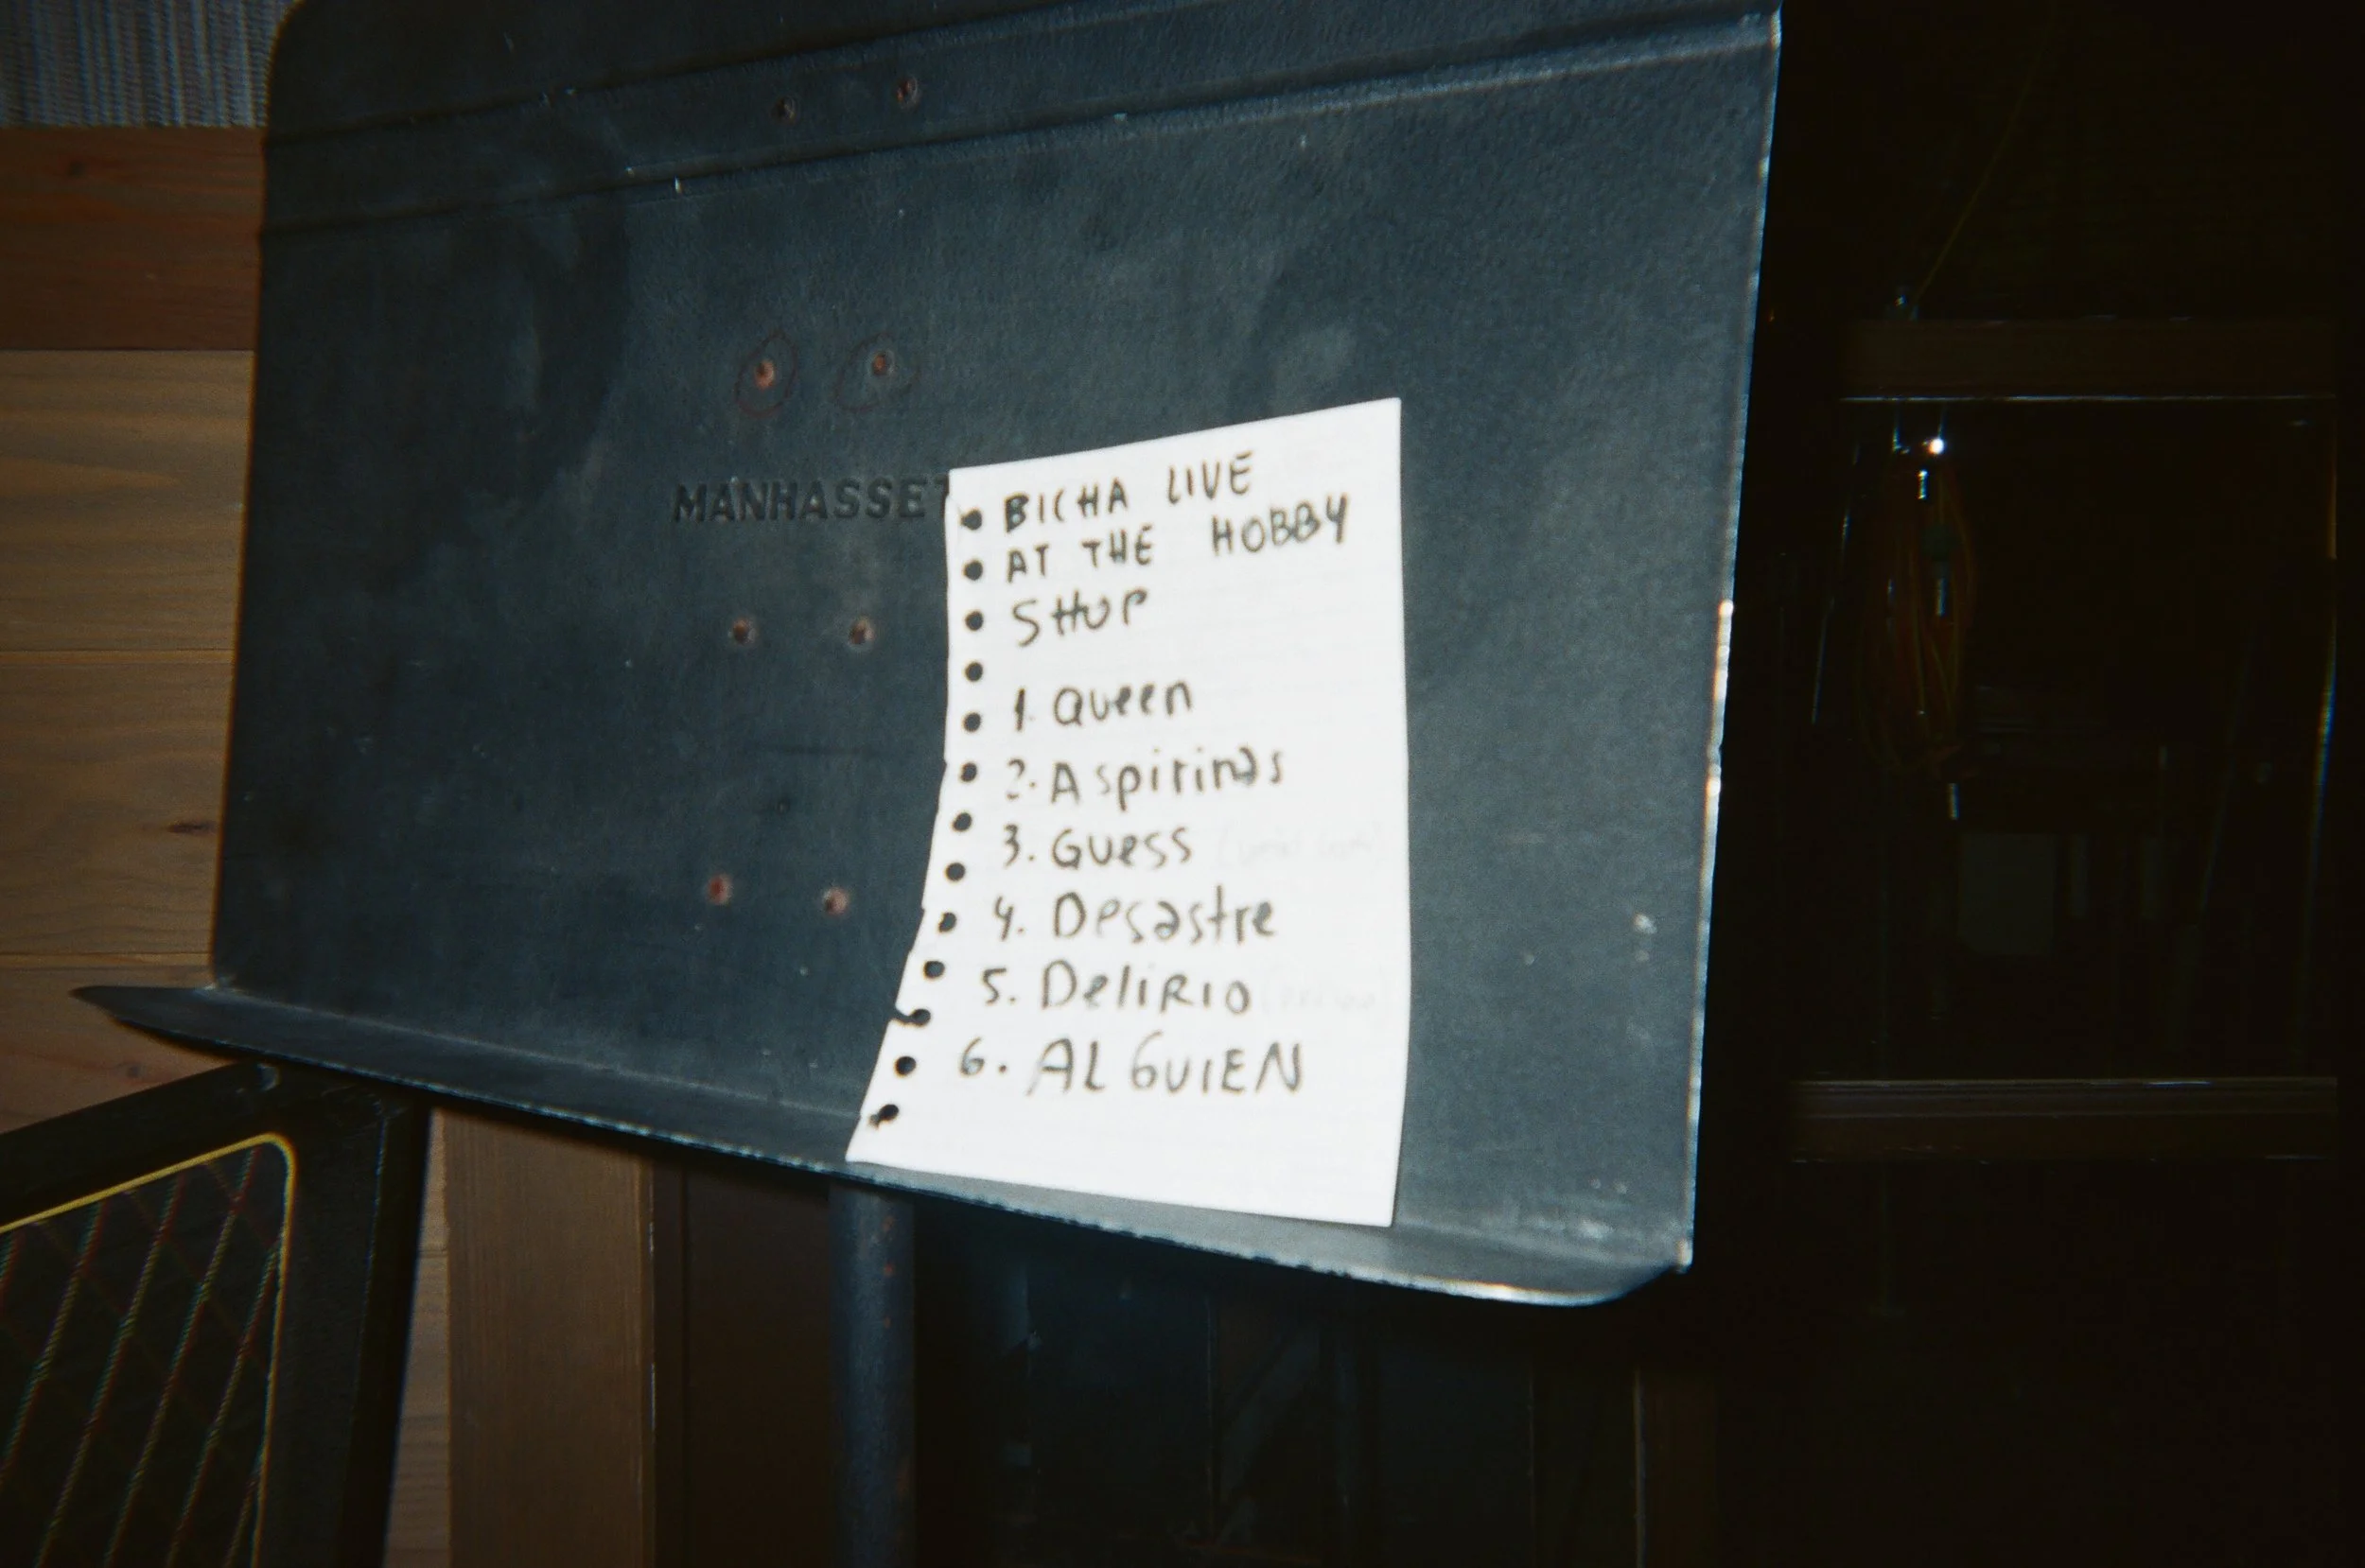 MANHASSET
BICHA LIVE
AT THE HOBBY
SHOP
1. Queen
2. Aspirinas
3. Guess
4. Desastre
5. Delirio
6. ALGUIEN